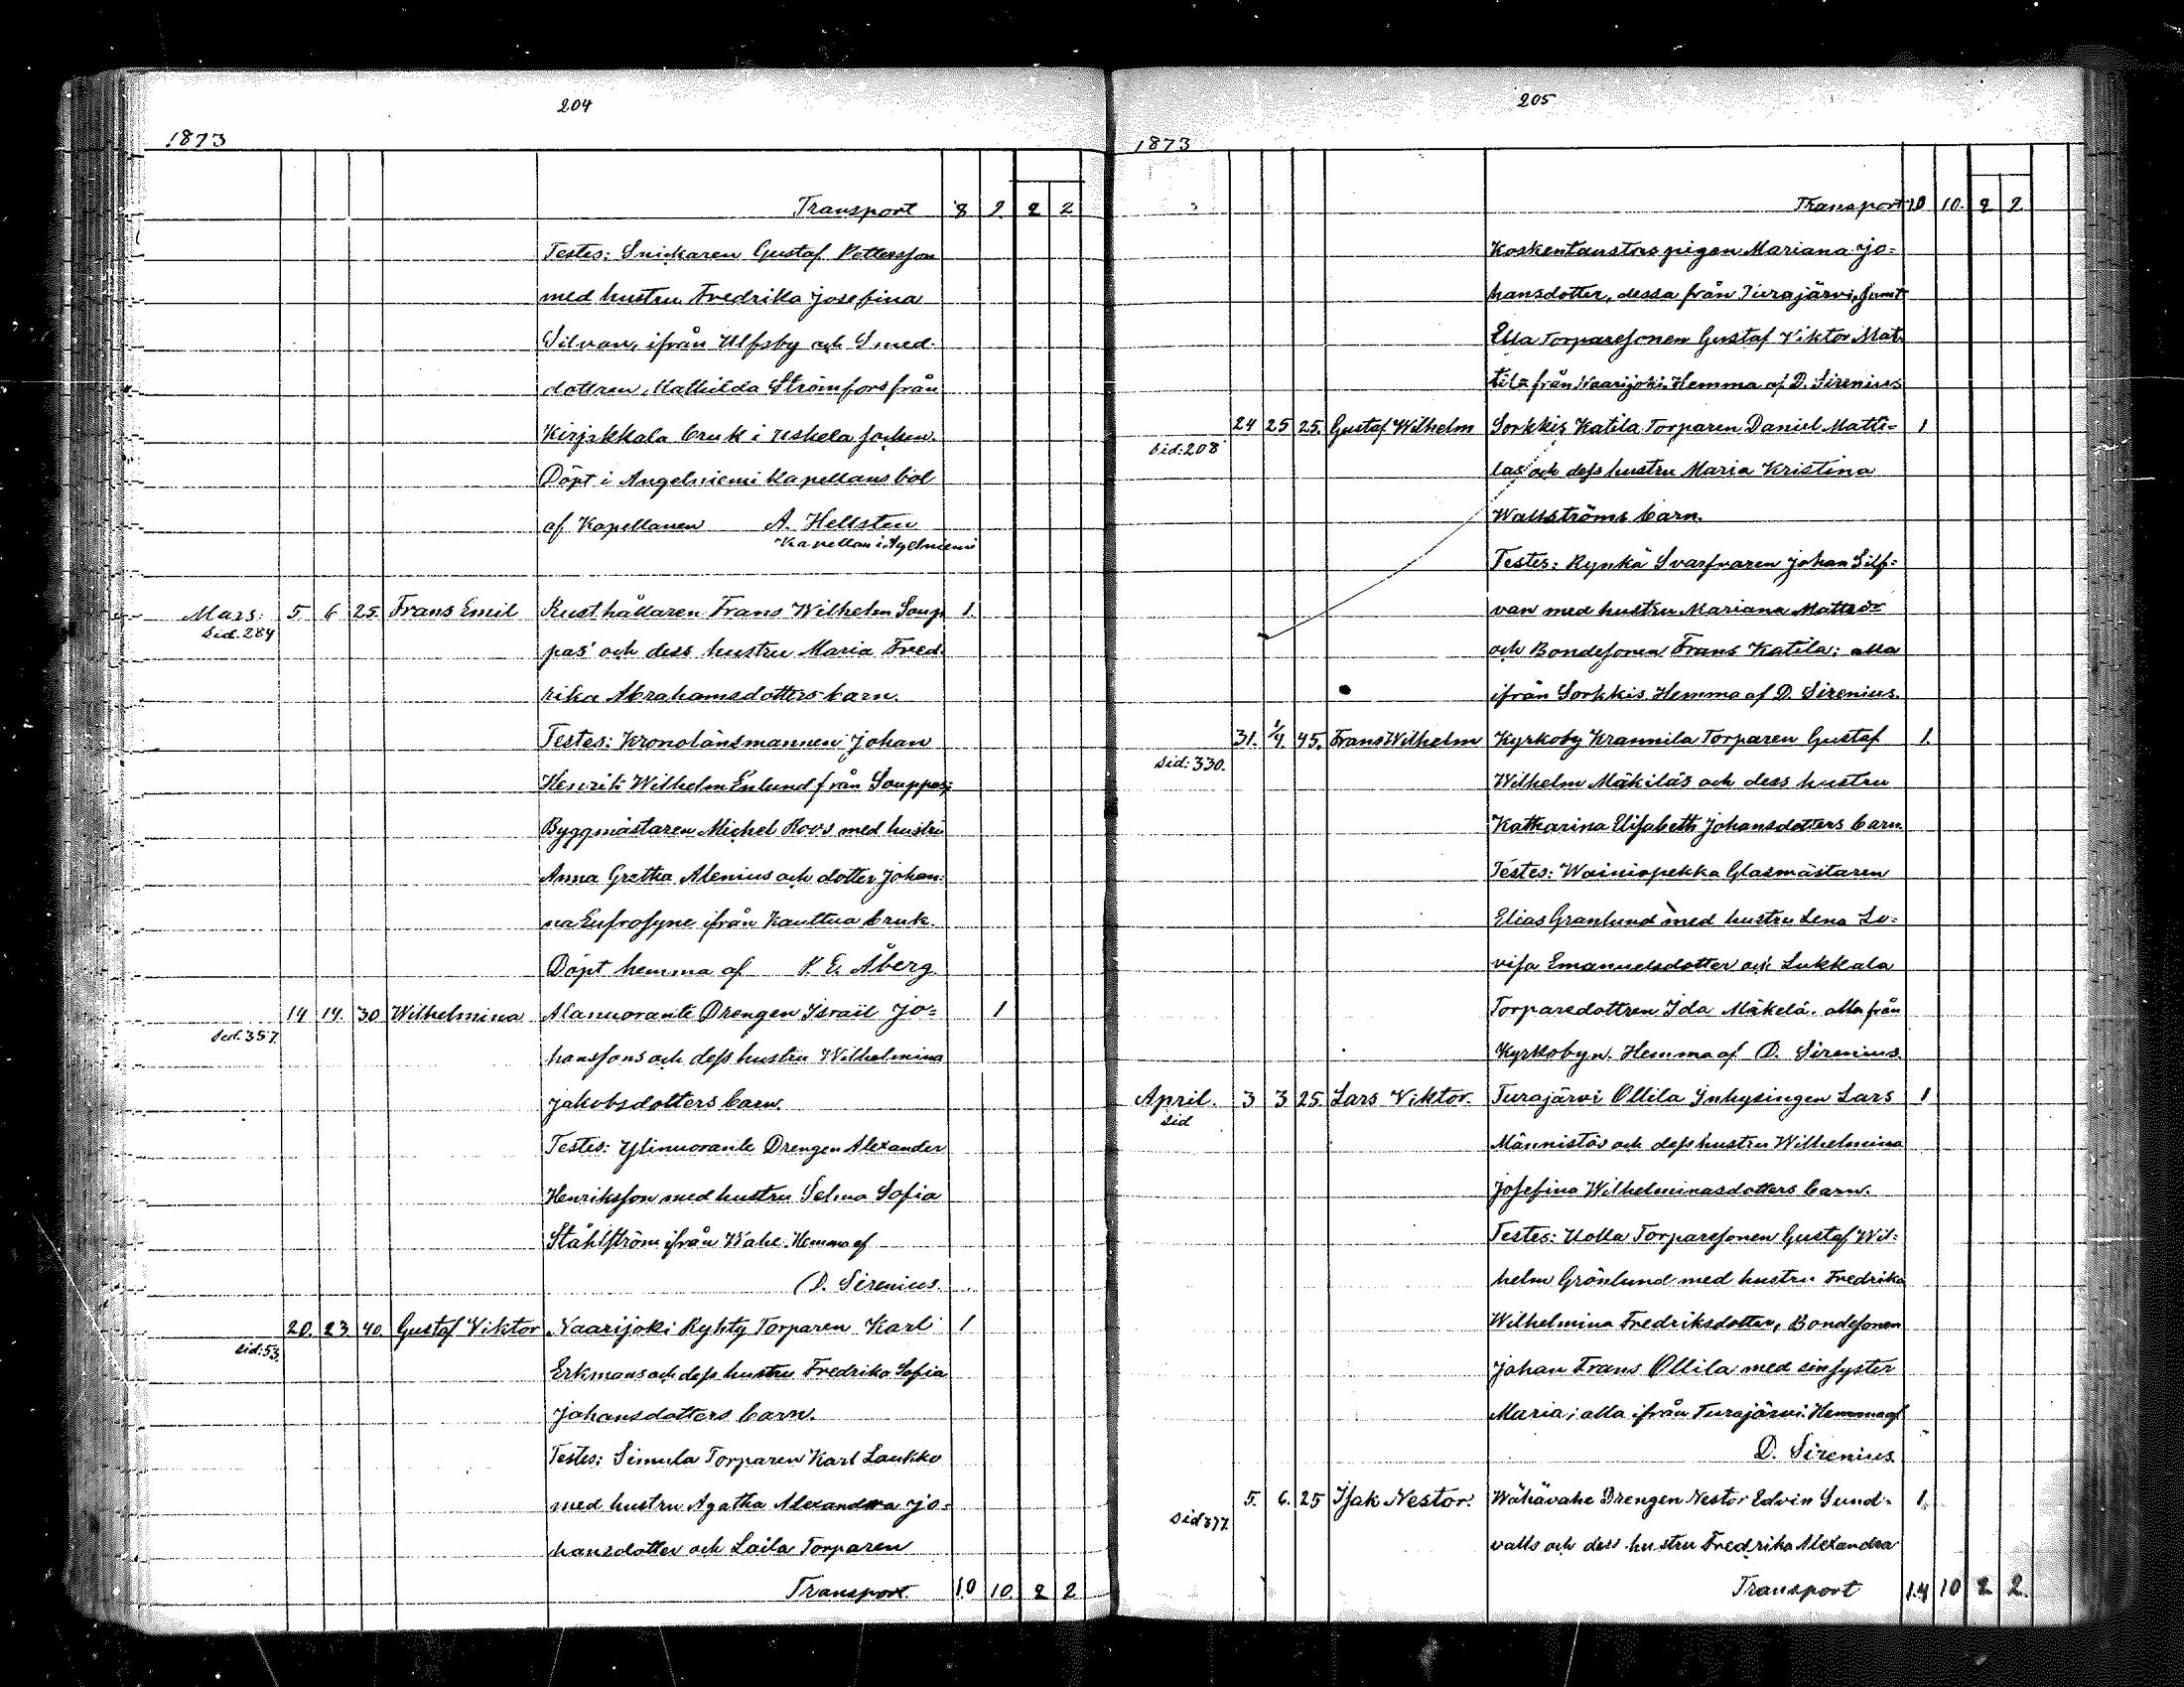 204
1873
Transport 8 9 2 2
Testes: Snickaren Gustaf Pettersson
med hustru Fredrika Josefina
Silvan, ifrån Ulfsby och Smed
dottren Mathilda Strömfors från
Kirjakkala bruk i Uskela socken.
Döpt i Angelniemi Kapellansbol
af Kapellanen A. Hellsten
Kapellan i Aglniemi
Mars: 5. 6 25. Frans Emil Rusthållaren Frans Wilhelm Soup 1.
Sid. 284
pas' och dess hustru Maria Fred
rika Abrahamsdotters barn.
Testes: Kronolänsmannen Johan
Henrik Wilhelm Enlund från Souppas;
Byggmästaren Michel Roos med hustru
Anna Gretha Alenius och dotter Johan=
na Eufrosyne ifrån Kauttua bruk.
Döpt hemma af P. E. Åberg.
14 14. 30 Wilhelmina Alanuoranti Drengen Israil Jo= 1
Sid. 357.
hanssons och dess hustru Wilhelmina
Jakobsdotters barn.
Testes: Ylinuoranti Drengen Alexander
Henriksson med hustru Selma Sofia
Ståhlström ifrån Wahe. Hemma af
D. Sirenius.
20. 23 40. Gustaf Viktor Naarijoki Ryhty Torparen Karl 1
Sid: 53.
Erkmans och dess hustru Fredrika Sofia
Johansdotters barn.
Testes: Simula Torparen Karl Laukko
med hustru Agatha Alexandra Jo=
hansdotter och Laila Torparen
Transport 10 10. 2 2
205
1873
Transport 10 10. 2 2
Koskentaustas pigan Mariana Jo=
hansdotter, dessa från Turajärvi, samt
Ella Torparesonen Gustaf Viktor Mat
tila från Naarijoki. Hemma af D. Sirenius
24 25 25. Gustaf Wilhelm Sorkkis Katila Torparen Daniel Matti= 1
Sid: 208
las och dess hustru Maria Kristina
Wallströms barn.
Testes: Rynkä Svarfvaren Johan Silf=
van med hustru Mariana Mattsdr
och Bondesonen Frans Katila; alla
ifrån Sorkkis. Hemma af D. Sirenius.
31. 1/4. 45. Frans Wilhelm Kyrkoby Krannila Torparen Gustaf 1.
Sid: 330.
Wilhelm Mäkiläs och dess hustru
Katharina Elisabeth Johansdotters barn.
Testes: Wainiopekka Glasmästaren
Elias Granlund med hustru Lena Lo=
visa Emanuelsdotter och Lukkala
Torparedottren Ida Mäkelä. alla från
Kyrkobyn. Hemma af D. Sirenius.
April. 3 3 25. Lars Viktor. Turajärvi Ollila Inhysingen Lars 1
Sid
Männistös och dess hustru Wilhelmina
Josefina Wilhelminasdotters barn.
Testes: Uolla Torparesonen Gustaf Wil=
helm Grönlund med hustru Fredrika
Wilhelmina Fredriksdotter, Bondesonen
Johan Frans Ollila med sin syster
Maria; alla ifrån Turajärvi. Hemma af
D. Sirenius.
5. 6. 25 Isak Nestor. Wähävahe Drengen Nestor Edvin Sund= 1.
Sid 377
valls och dess hustru Fredrika Alexandra
Transport 14 10 2 2.